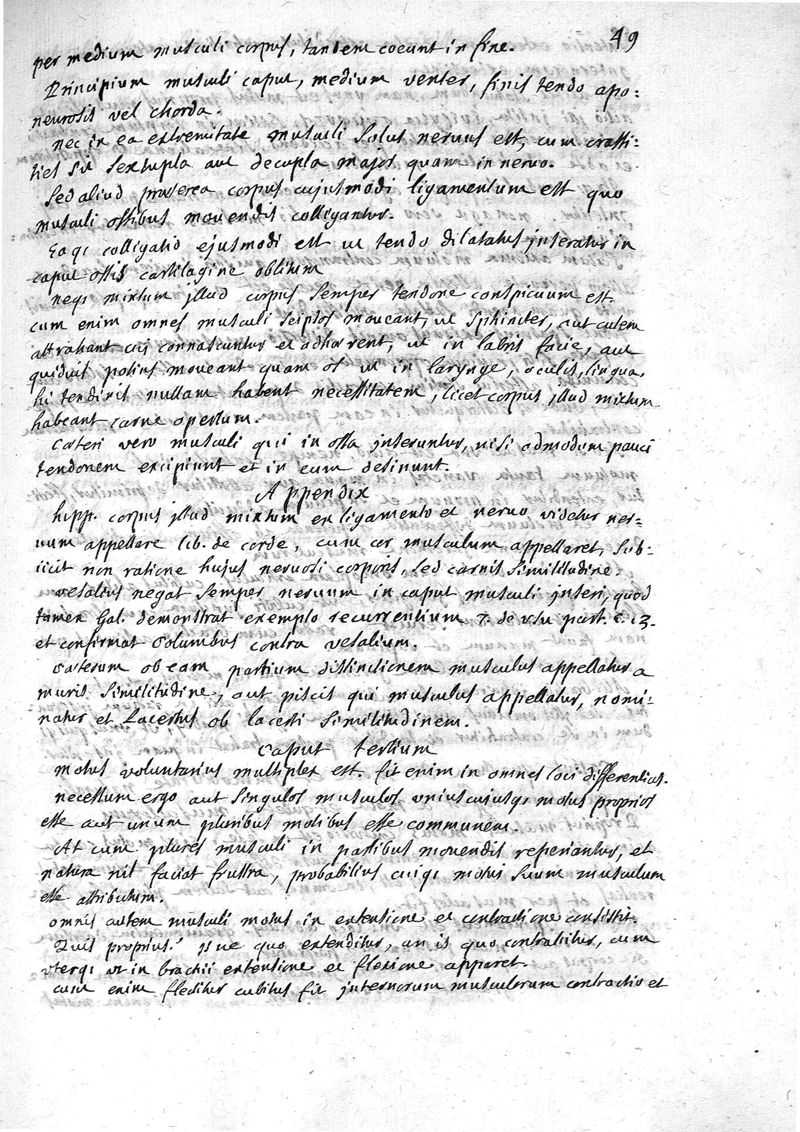 49
per medium musculi corpus, tandem coeunt in fine.
Principium musculi caput, medium venter, finis tendo apo:
neurosis vel chorda.
nec in ea extremitate musculi solus neruus est, cum crassi:
ties sit sextupla aut decupla major quam in neruo.
Sed aliud praeterea corpus cujusmodi ligamentum est quo
musculi ossibus mouendis colligantur.
Eaqi colligatio ejusmodi est ut tendo dilatatus jnseratur in
caput ossis cartilagine oblitum
neqi mixtum jllud corpus semper tendone conspicuum est.
cum enim omnes musculi seipsos moueant, ut sphincter, aut cutem
attrahant cui connascuntur et adhaerent, ut in labris facie, aut
quiduis potius moueant quam os ut in larynge, oculis, lingua,
hi tendinis nullam habent necessitatem, licet corpus jllud mixtum
habeant carne opertum.
Caeteri vero musculi qui in ossa jnseruntur, nisi admodum pauci
tendonem excipiunt et in eum desinunt.
Appendix
hipp. corpus jllud mixtum ex ligamento et neruo videtur ner:
uum appellare lib. de corde, cum cor musculum appellaret, sub:
iicit non ratione hujus neruosi corporis, sed carnis similitudine.
vesalius negat semper neruum in caput musculi jnseri, quod
tamen Gal. demonstrat exemplo recurrentium 7. de usu part. c. 13.
et confirmat Columbus contra vesalium.
Caeterum ob eam partium distinctionem musculus appellatur a
muris similitudine, aut piscis qui musculus appellatur, nomi:
natur et Lacertus ob lacerti similitudinem.
Caput tertium
motus voluntarius multiplex est. fit enim in omnes loci differentias.
necessum ergo aut singulos musculos uniuscujusqi motus proprios
esse aut unum pluribus motibus esse communem.
At cum plures musculi in partibus mouendis reperiantur, et
natura nil faciat frustra, probabilius cuiqi motui suum musculum
esse attributum.
omnis autem musculi motus in extensione et contractione consistit.
Quis proprius? js ne quo extenditur, an is quo contrahitur, cum
uterqi ut in brachii extensione et flexione apparet.
cum enim flectitur cubitus fit jnternorum musculorum contractio et